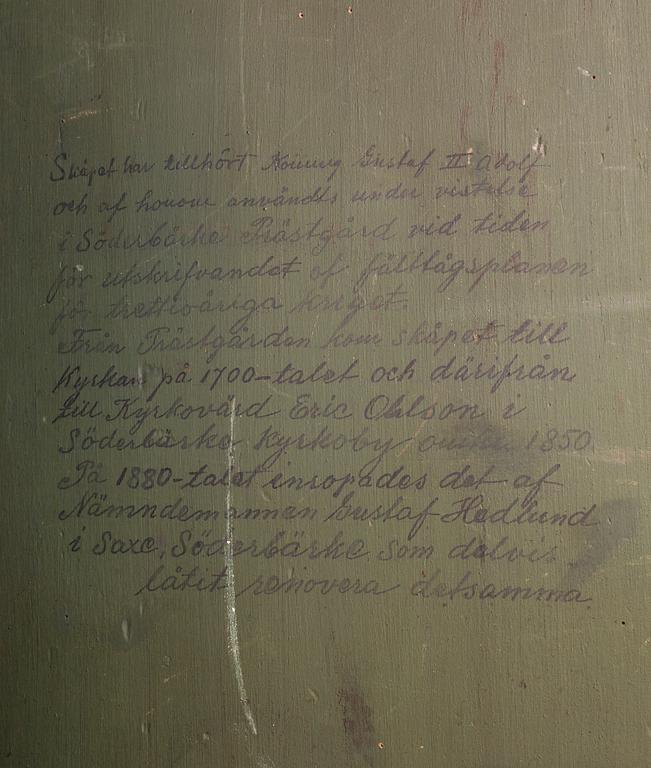 Skåpet har tillhört Konung Gustaf II Adolf
och af honom användts under vistelse
i Söderbärke Prästgård vid tiden
för utskrifvandet af fälttågsplanen
för trettioåriga kriget.
Från Prästgården kom skåpet till
Kyrkan på 1700-talet och därifrån
till Kyrkovärd Eric Ohlson i
Söderbärke Kyrkoby 1850.
På 1880-talet inropades det af
Nämndemannen Gustaf Hedlund
i Saxe, Söderbärke som delvis
låtit renovera detsamma.